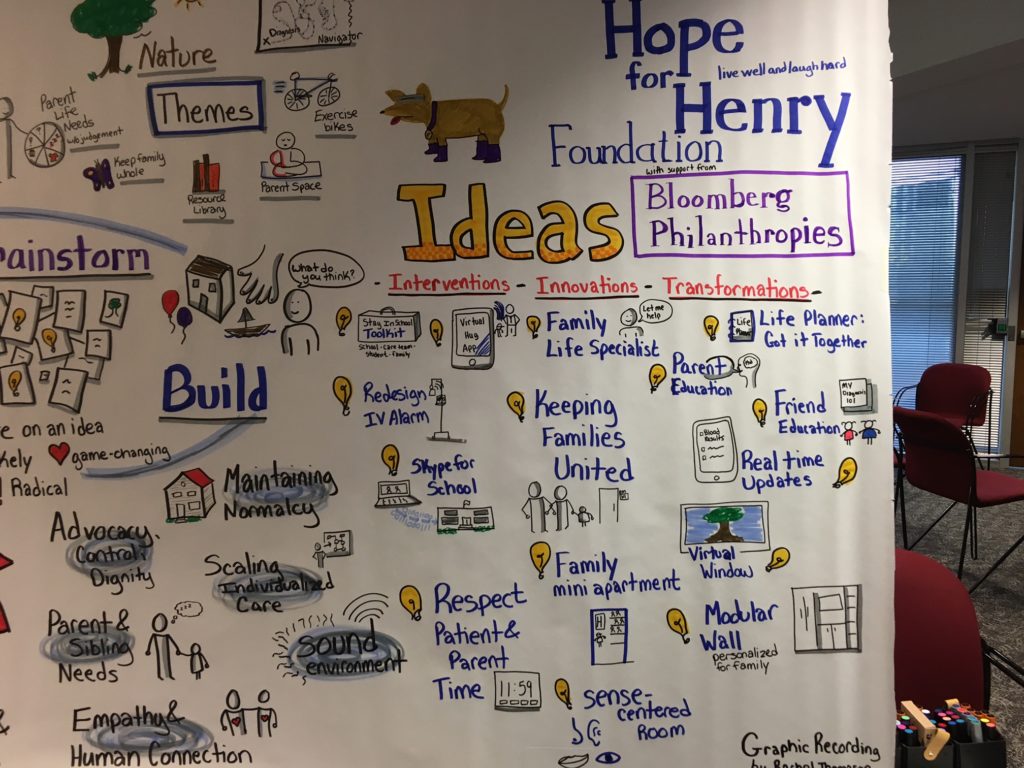 Nature
Diagnosis
Navigator
Parent
Life
Needs
w/o judgement
Themes
Exercise
bikes
Keep family
whole
Resource
Library
Parent Space
rainstorm
What do
you think?
Build
e on an idea
kely game-changing
Radical
Maintaining
Normalcy
Advocacy,
Control &
Dignity
Scaling
Individualized
Care
Parent &
Sibling
Needs
Sound
environment
Empathy &
Human Connection
Hope
for
live well and laugh hard
Henry
Foundation
with support from
Bloomberg
Philanthropies
Ideas
- Interventions - Innovations - Transformations -
Stay In School
Toolkit
School - Care team -
student - family
Virtual
Hug
App
Family
Life Specialist
Let me
help
Life
Life Planner:
Got it Together
Redesign
IV Alarm
Keeping
Families
United
Parent
Education
Friend
Education
MY
Diagnosis
101
Skype for
School
Blood
Results
Real time
Updates
Virtual
Window
Family
mini apartment
Respect
Patient &
Parent
Time
11:59
Modular
Wall
personalized
for family
Sense-
centered
Room
Graphic Recording
by Rachel